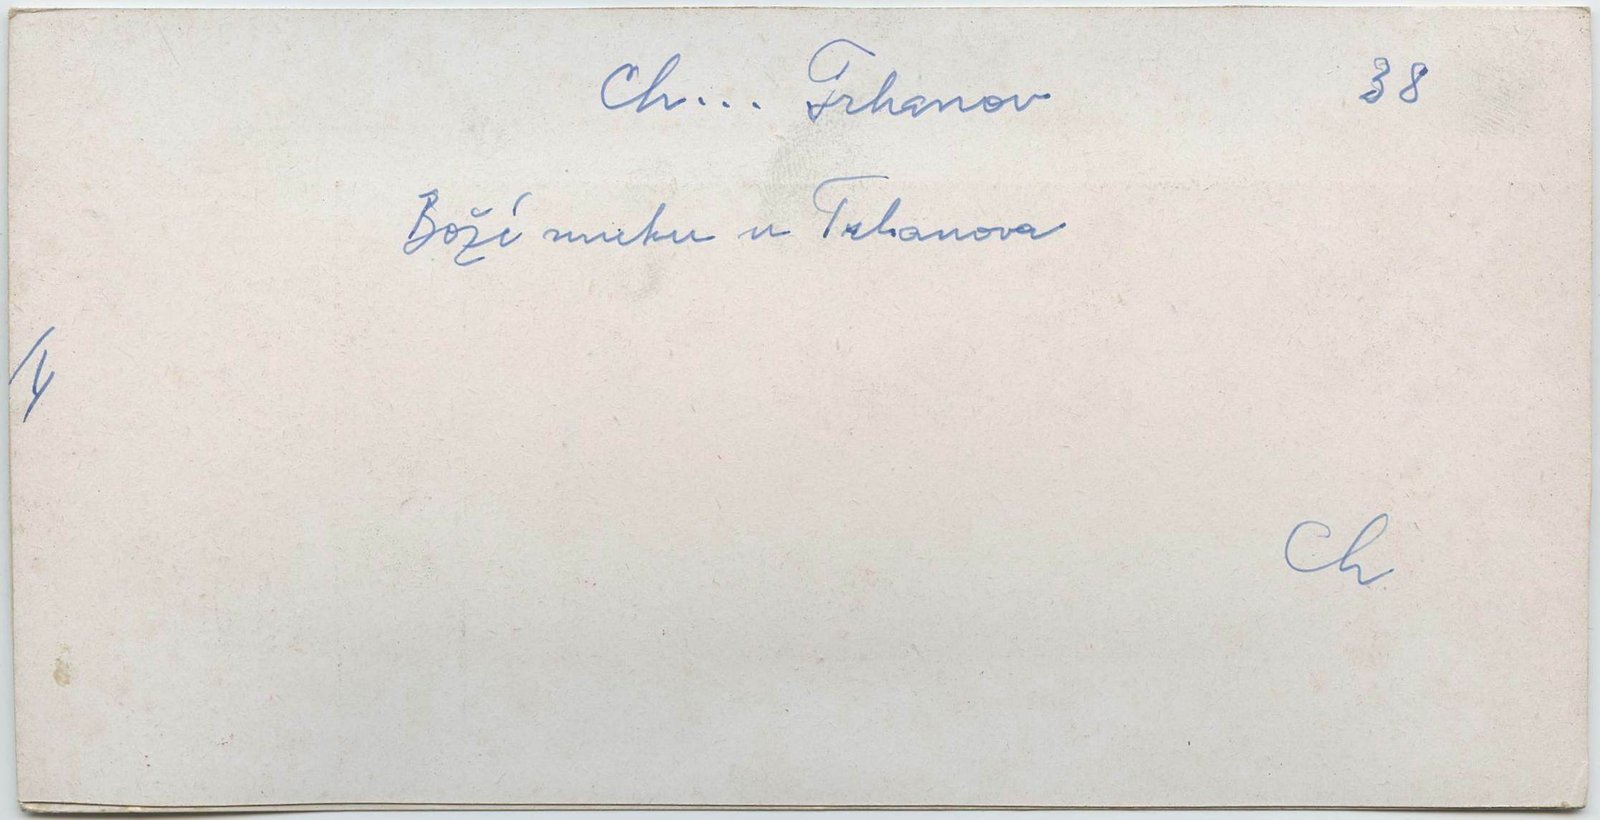 Ch... Trhanov 38
Boží muku u Trhanova
Ch